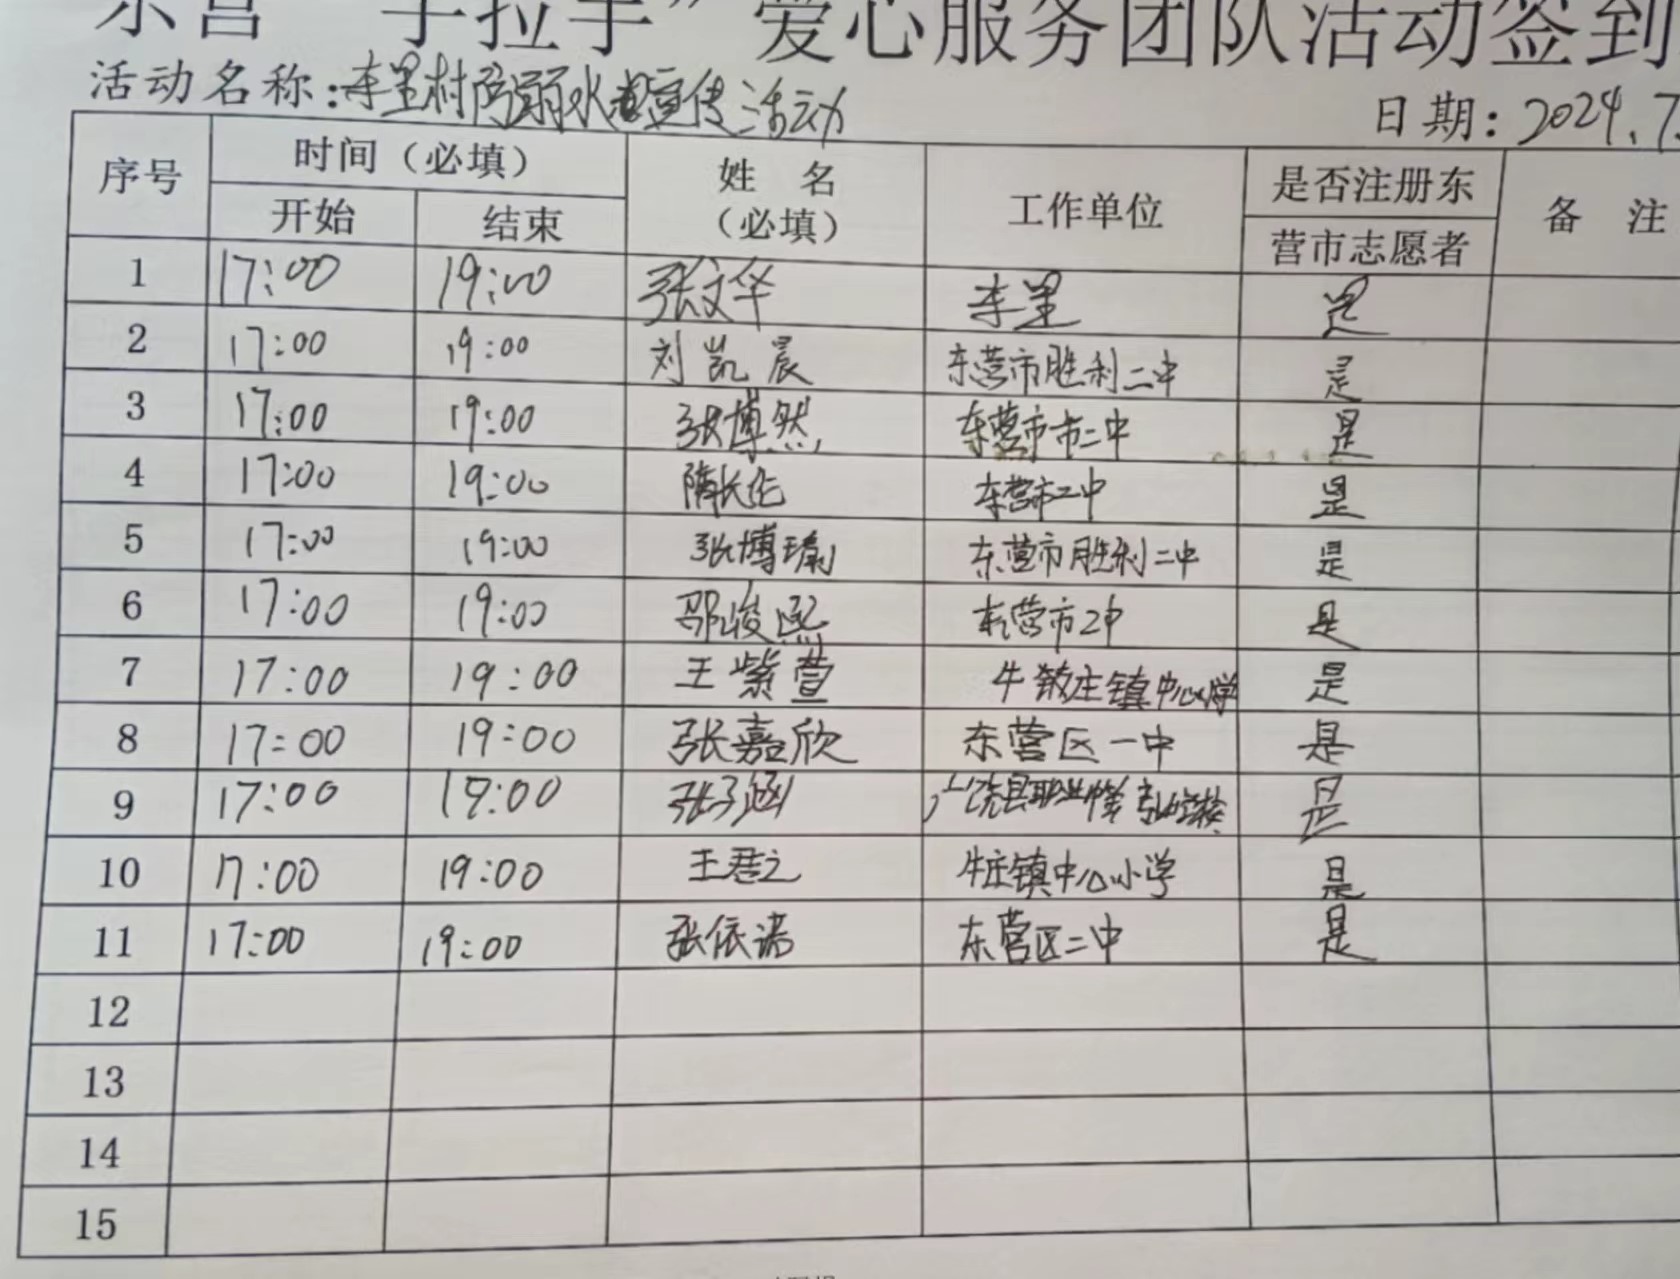 东营“手拉手”爱心服务团队活动签到
活动名称:李里村防溺水宣传活动
日期: 2024.7.
序号 时间(必填) 姓 名 (必填) 工作单位 是否注册东 营市志愿者 备 注
开始 结束
1 17:00 19:00 张文华 李里 是
2 17:00 19:00 刘凯晨 东营市胜利二中 是
3 17:00 19:00 张博然 东营市市二中 是
4 17:00 19:00 隋长伦 东营市二中 是
5 17:00 19:00 张博瑜 东营市胜利二中 是
6 17:00 19:00 邵俊熙 东营市2中 是
7 17:00 19:00 王紫萱 牛庄镇中心小学 是
8 17:00 19:00 张嘉欣 东营区一中 是
9 17:00 19:00 张子涵 广饶县职业中等 学校 是
10 17:00 19:00 王君之 牛庄镇中心小学 是
11 17:00 19:00 张依诺 东营区二中 是
12
13
14
15